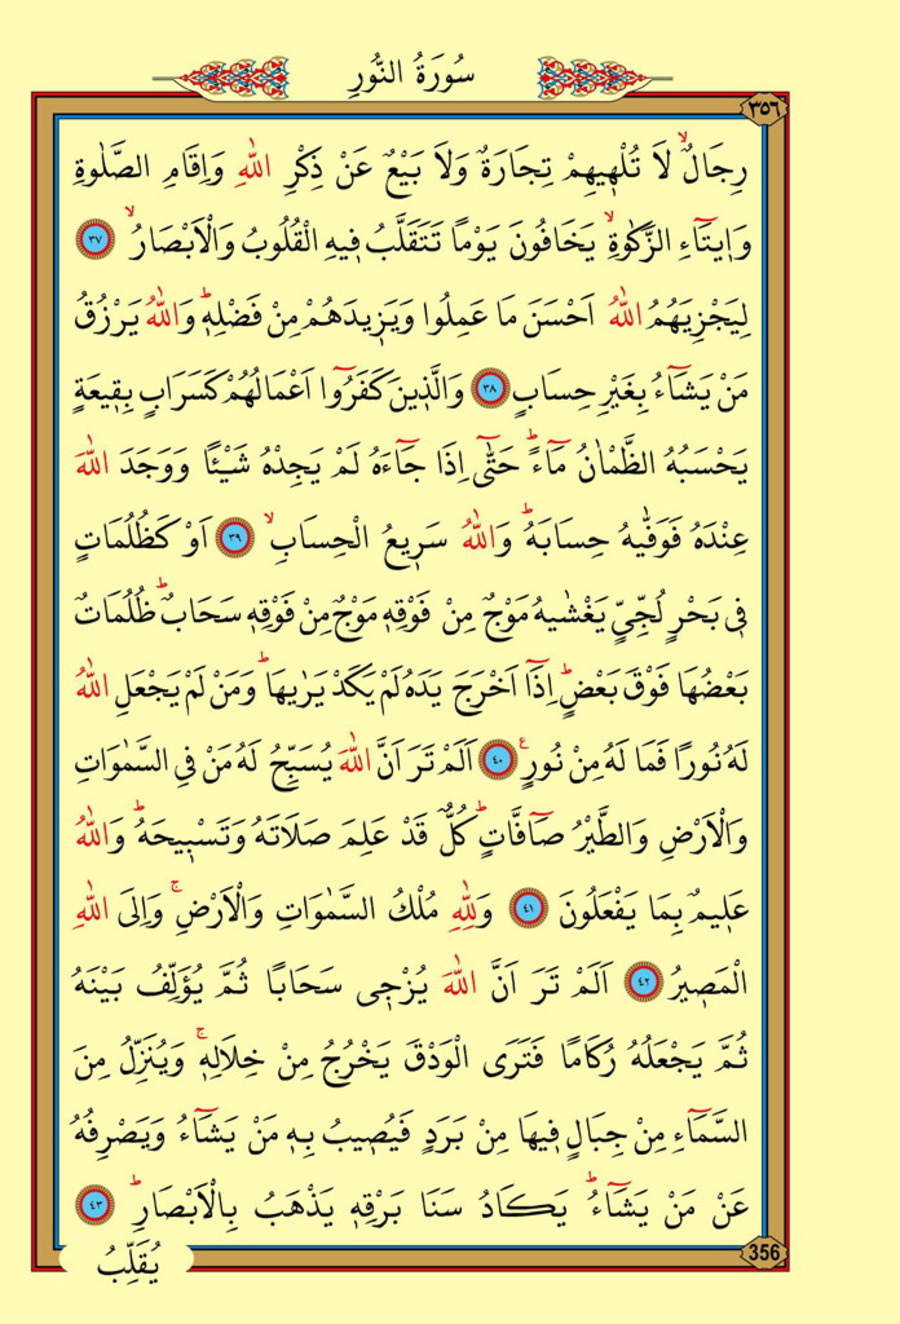 سُورَةُ النُّورِ
٣٥٦
رِجَالٌۙ لَا تُلْهٖيهِمْ تِجَارَةٌ وَلَا بَيْعٌ عَنْ ذِكْرِ اللّٰهِ وَاِقَامِ الصَّلٰوةِ
وَاٖيتَٓاءِ الزَّكٰوةِۙ يَخَافُونَ يَوْمًا تَتَقَلَّبُ فٖيهِ الْقُلُوبُ وَالْاَبْصَارُۙ ﴿٣٧﴾
لِيَجْزِيَهُمُ اللّٰهُ اَحْسَنَ مَا عَمِلُوا وَيَزٖيدَهُمْ مِنْ فَضْلِهٖؕ وَاللّٰهُ يَرْزُقُ
مَنْ يَشَٓاءُ بِغَيْرِ حِسَابٍ ﴿٣٨﴾ وَالَّذٖينَ كَفَرُٓوا اَعْمَالُهُمْ كَسَرَابٍ بِقٖيعَةٍ
يَحْسَبُهُ الظَّمْاٰنُ مَٓاءًؕ حَتّٰٓى اِذَا جَٓاءَهُ لَمْ يَجِدْهُ شَيْـًٔا وَوَجَدَ اللّٰهَ
عِنْدَهُ فَوَفّٰيهُ حِسَابَهُؕ وَاللّٰهُ سَرٖيعُ الْحِسَابِۙ ﴿٣٩﴾ اَوْ كَظُلُمَاتٍ
فٖى بَحْرٍ لُجِّىٍّ يَغْشٰيهُ مَوْجٌ مِنْ فَوْقِهٖ مَوْجٌ مِنْ فَوْقِهٖ سَحَابٌؕ ظُلُمَاتٌ
بَعْضُهَا فَوْقَ بَعْضٍؕ اِذَٓا اَخْرَجَ يَدَهُ لَمْ يَكَدْ يَرٰيهَاؕ وَمَنْ لَمْ يَجْعَلِ اللّٰهُ
لَهُ نُورًا فَمَا لَهُ مِنْ نُورٍࣖ ﴿٤٠﴾ اَلَمْ تَرَ اَنَّ اللّٰهَ يُسَبِّحُ لَهُ مَنْ فِى السَّمٰوَاتِ
وَالْاَرْضِ وَالطَّيْرُ صَٓافَّاتٍؕ كُلٌّ قَدْ عَلِمَ صَلَاتَهُ وَتَسْبٖيحَهُؕ وَاللّٰهُ
عَلٖيمٌ بِمَا يَفْعَلُونَ ﴿٤١﴾ وَلِلّٰهِ مُلْكُ السَّمٰوَاتِ وَالْاَرْضِۚ وَاِلَى اللّٰهِ
الْمَصٖيرُ ﴿٤٢﴾ اَلَمْ تَرَ اَنَّ اللّٰهَ يُزْجٖى سَحَابًا ثُمَّ يُؤَلِّفُ بَيْنَهُ
ثُمَّ يَجْعَلُهُ رُكَامًا فَتَرَى الْوَدْقَ يَخْرُجُ مِنْ خِلَالِهٖۚ وَيُنَزِّلُ مِنَ
السَّمَٓاءِ مِنْ جِبَالٍ فٖيهَا مِنْ بَرَدٍ فَيُصٖيبُ بِهٖ مَنْ يَشَٓاءُ وَيَصْرِفُهُ
عَنْ مَنْ يَشَٓاءُؕ يَكَادُ سَنَا بَرْقِهٖ يَذْهَبُ بِالْاَبْصَارِؕ ﴿٤٣﴾
356
يُقَلِّبُ